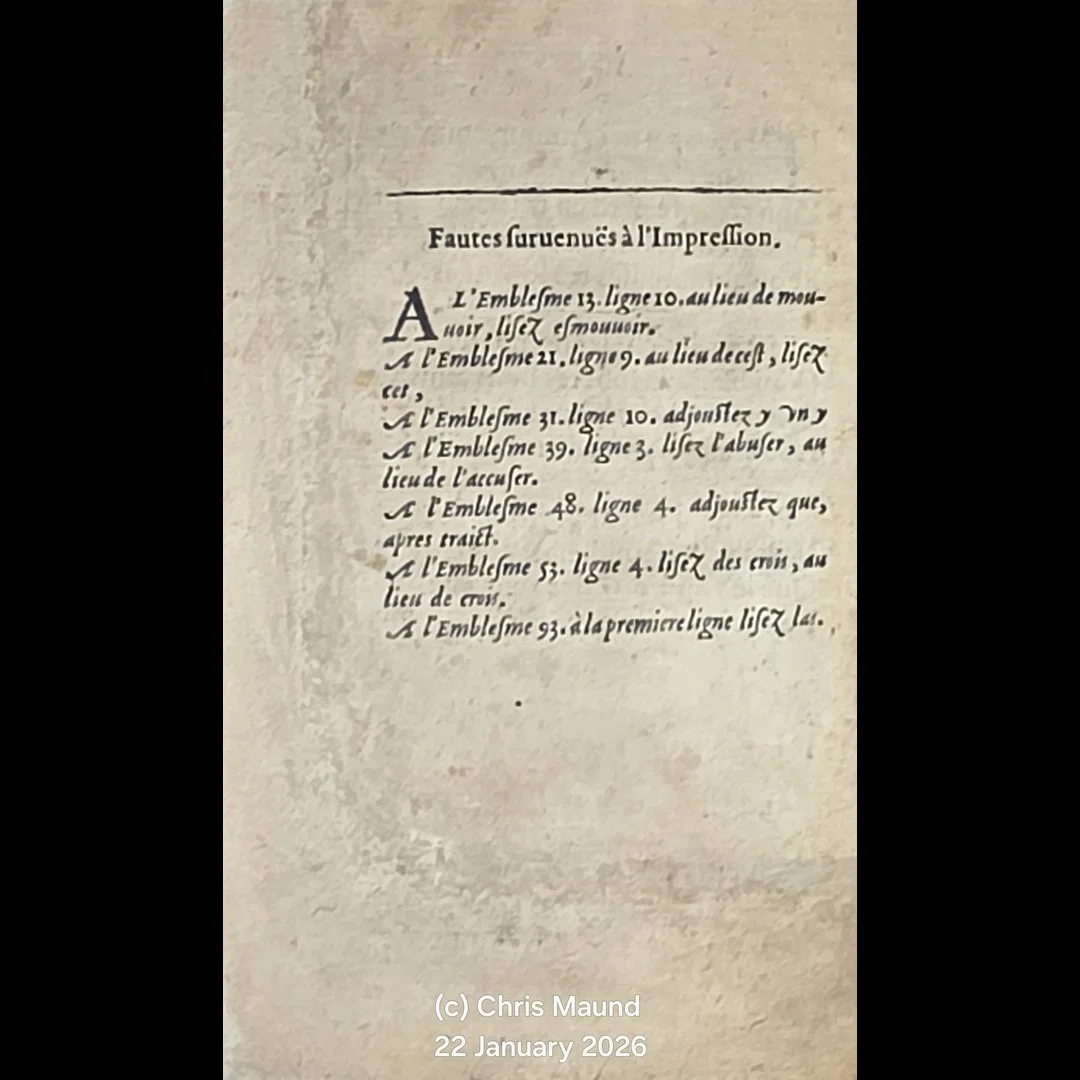 Fautes ſuruenuës à l'Impreſſion.
A L'Embleſme 13. ligne 10. au lieu de mou-
uoir, liſez eſmouuoir.
A l'Embleſme 21. ligne 9. au lieu de ceſt, liſez
cet,
A l'Embleſme 31. ligne 10. adjouſtez y vn y
A l'Embleſme 39. ligne 3. liſez l'abuſer, au
lieu de l'accuſer.
A l'Embleſme 48. ligne 4. adjouſtez que,
apres traict.
A l'Embleſme 53. ligne 4. liſez des crois, au
lieu de crois.
A l'Embleſme 93. à la premiere ligne liſez las.
(c) Chris Maund
22 January 2026